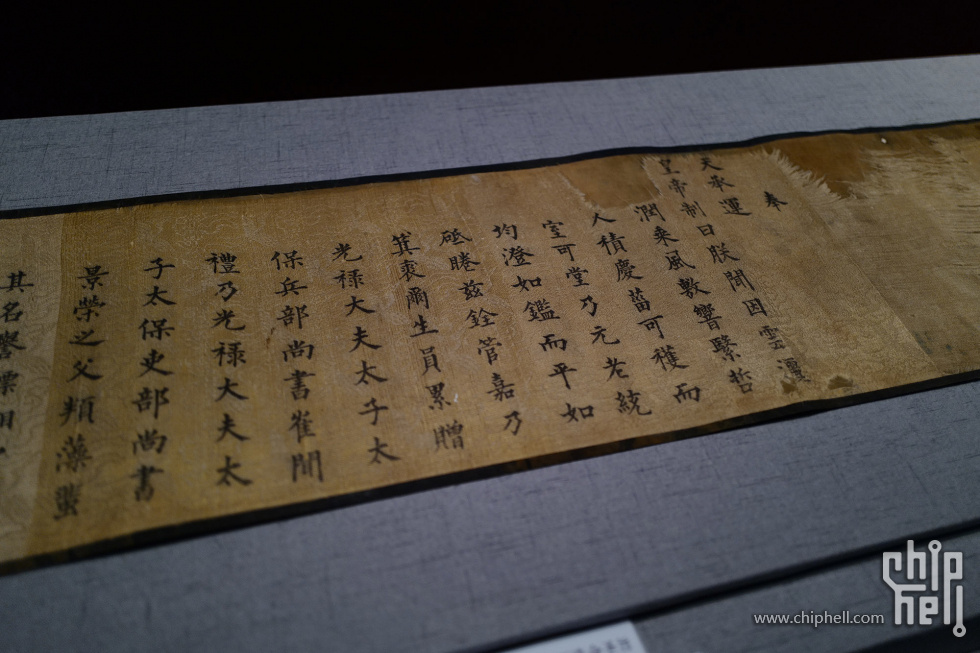 奉
天承運
皇帝制曰朕聞因雲灑
潤乘風敷響繄哲
人積慶菑可穫而
室可堂乃元老統
均澄如鑑而平如
砥睠茲銓管嘉乃
箕裘爾生員累贈
光祿大夫太子太
保兵部尚書崔閒
禮乃光祿大夫太
子太保吏部尚書
景榮之父頖藻蜚
其名譽標
chip
hell
www.chiphell.com